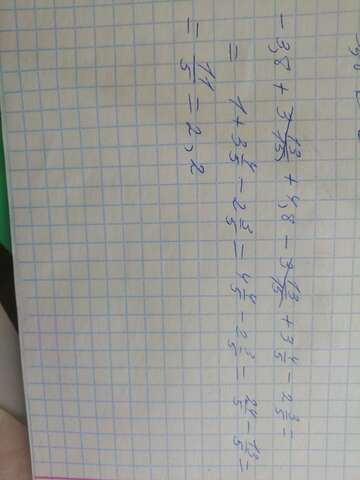 - 3,8 + 3 13/15 + 4,8 - 3 13/15 + 3 4/5 - 2 3/5 =
= 1 + 3 4/5 - 2 3/5 = 4 4/5 - 2 3/5 = 24/5 - 13/5 =
= 11/5 = 2,2